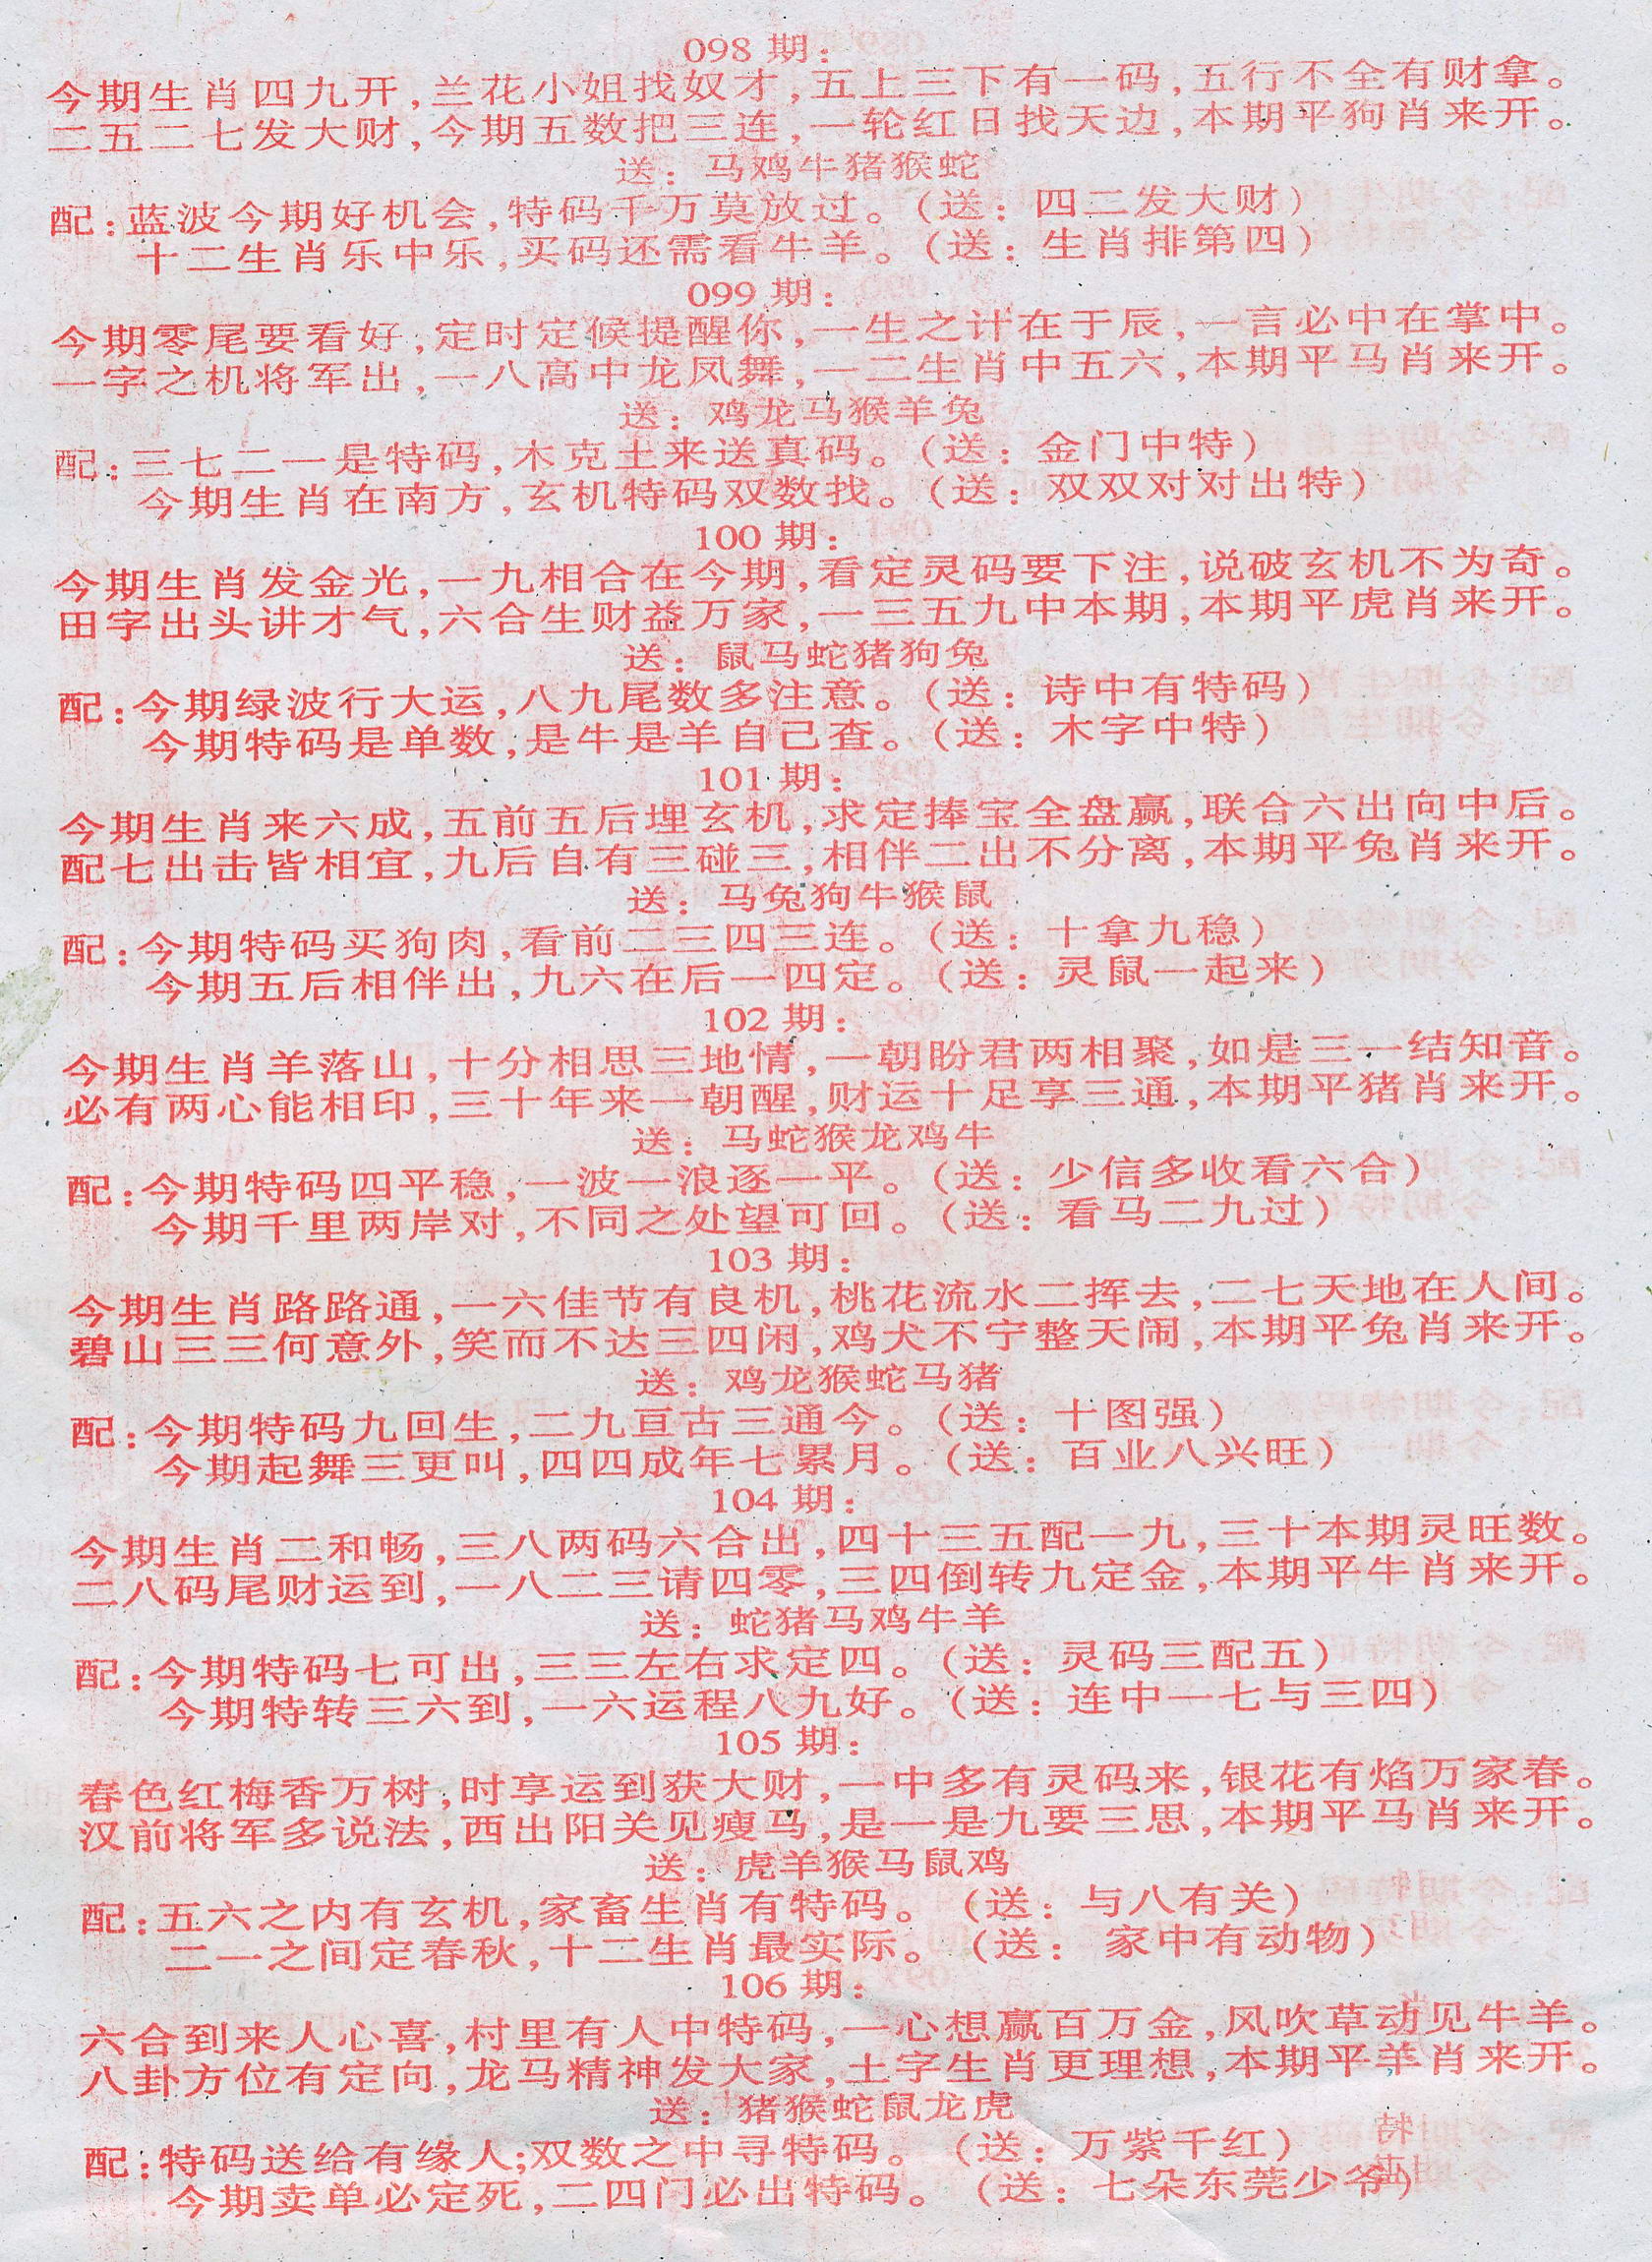 098 期：
今期生肖四九开,兰花小姐找奴才,五上三下有一码,五行不全有财拿。
二五二七发大财,今期五数把三连,一轮红日找天边,本期平狗肖来开。
送：马鸡牛猪猴蛇
配：蓝波今期好机会,特码千万莫放过。(送：四二发大财)
十二生肖乐中乐,买码还需看牛羊。(送：生肖排第四)
099 期：
今期零尾要看好,定时定候提醒你,一生之计在于辰,一言必中在掌中。
一字之机将军出,一八高中龙凤舞,一二生肖中五六,本期平马肖来开。
送：鸡龙马猴羊兔
配：三七二一是特码,木克土来送真码。(送：金门中特)
今期生肖在南方,玄机特码双数找。(送：双双对对出特)
100 期：
今期生肖发金光,一九相合在今期,看定灵码要下注,说破玄机不为奇。
田字出头讲才气,六合生财益万家,一三五九中本期,本期平虎肖来开。
送：鼠马蛇猪狗兔
配：今期绿波行大运,八九尾数多注意。(送：诗中有特码)
今期特码是单数,是牛是羊自己查。(送：木字中特)
101 期：
今期生肖来六成,五前五后埋玄机,求定捧宝全盘赢,联合六出向中后。
配七出击皆相宜,九后自有三碰三,相伴二出不分离,本期平兔肖来开。
送：马兔狗牛猴鼠
配：今期特码买狗肉,看前二三四三连。(送：十拿九稳)
今期五后相伴出,九六在后一四定。(送：灵鼠一起来)
102 期：
今期生肖羊落山,十分相思三地情,一朝盼君两相聚,如是三一结知音。
必有两心能相印,三十年来一朝醒,财运十足享三通,本期平猪肖来开。
送：马蛇猴龙鸡牛
配：今期特码四平稳,一波一浪逐一平。(送：少信多收看六合)
今期千里两岸对,不同之处望可回。(送：看马二九过)
103 期：
今期生肖路路通,一六佳节有良机,桃花流水二挥去,二七天地在人间。
碧山三三何意外,笑而不达三四闲,鸡犬不宁整天闹,本期平兔肖来开。
送：鸡龙猴蛇马猪
配：今期特码九回生,二九亘古三通今。(送：十图强)
今期起舞三更叫,四四成年七累月。(送：百业八兴旺)
104 期：
今期生肖二和畅,三八两码六合出,四十三五配一九,三十本期灵旺数。
二八码尾财运到,一八二三请四零,三四倒转九定金,本期平牛肖来开。
送：蛇猪马鸡牛羊
配：今期特码七可出,三三左右求定四。(送：灵码三配五)
今期特转三六到,一六运程八九好。(送：连中一七与三四)
105 期：
春色红梅香万树,时享运到获大财,一中多有灵码来,银花有焰万家春。
汉前将军多说法,西出阳关见瘦马,是一是九要三思,本期平马肖来开。
送：虎羊猴马鼠鸡
配：五六之内有玄机,家畜生肖有特码。(送：与八有关)
二一之间定春秋,十二生肖最实际。(送：家中有动物)
106 期：
六合到来人心喜,村里有人中特码,一心想赢百万金,风吹草动见牛羊。
八卦方位有定向,龙马精神发大家,土字生肖更理想,本期平羊肖来开。
送：猪猴蛇鼠龙虎
配：特码送给有缘人;双数之中寻特码。(送：万紫千红)
今期卖单必定死,二四门必出特码。(送：七朵东莞少爷)